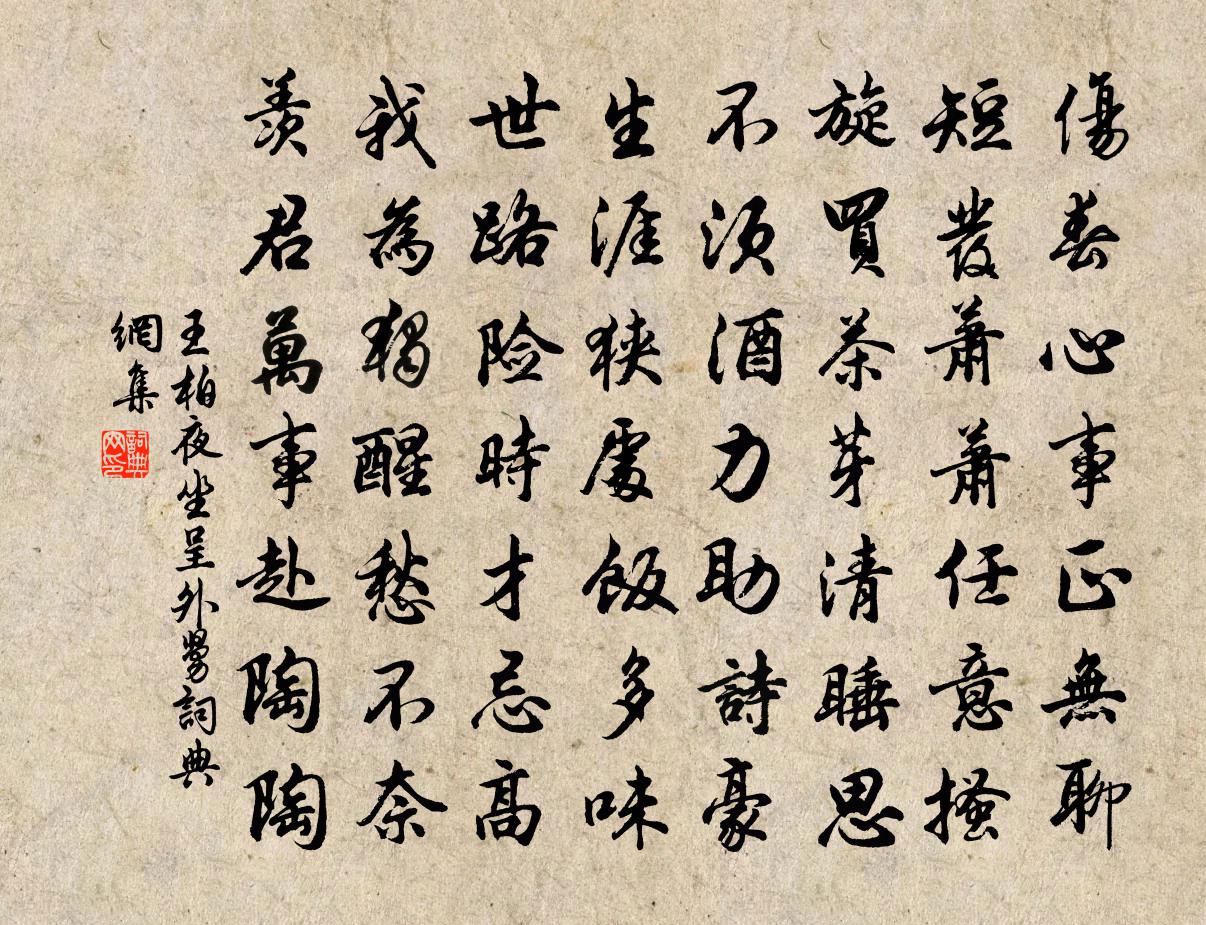 傷春心事正無聊
短發蕭蕭任意搔
旋買茶芽清睡思
不須酒力助詩豪
生涯狹處飯多味
世路險時才忌高
我為獨醒愁不奈
羨君萬事赴陶陶
王柏夜坐呈外舅詞典
網集
詞典
网印